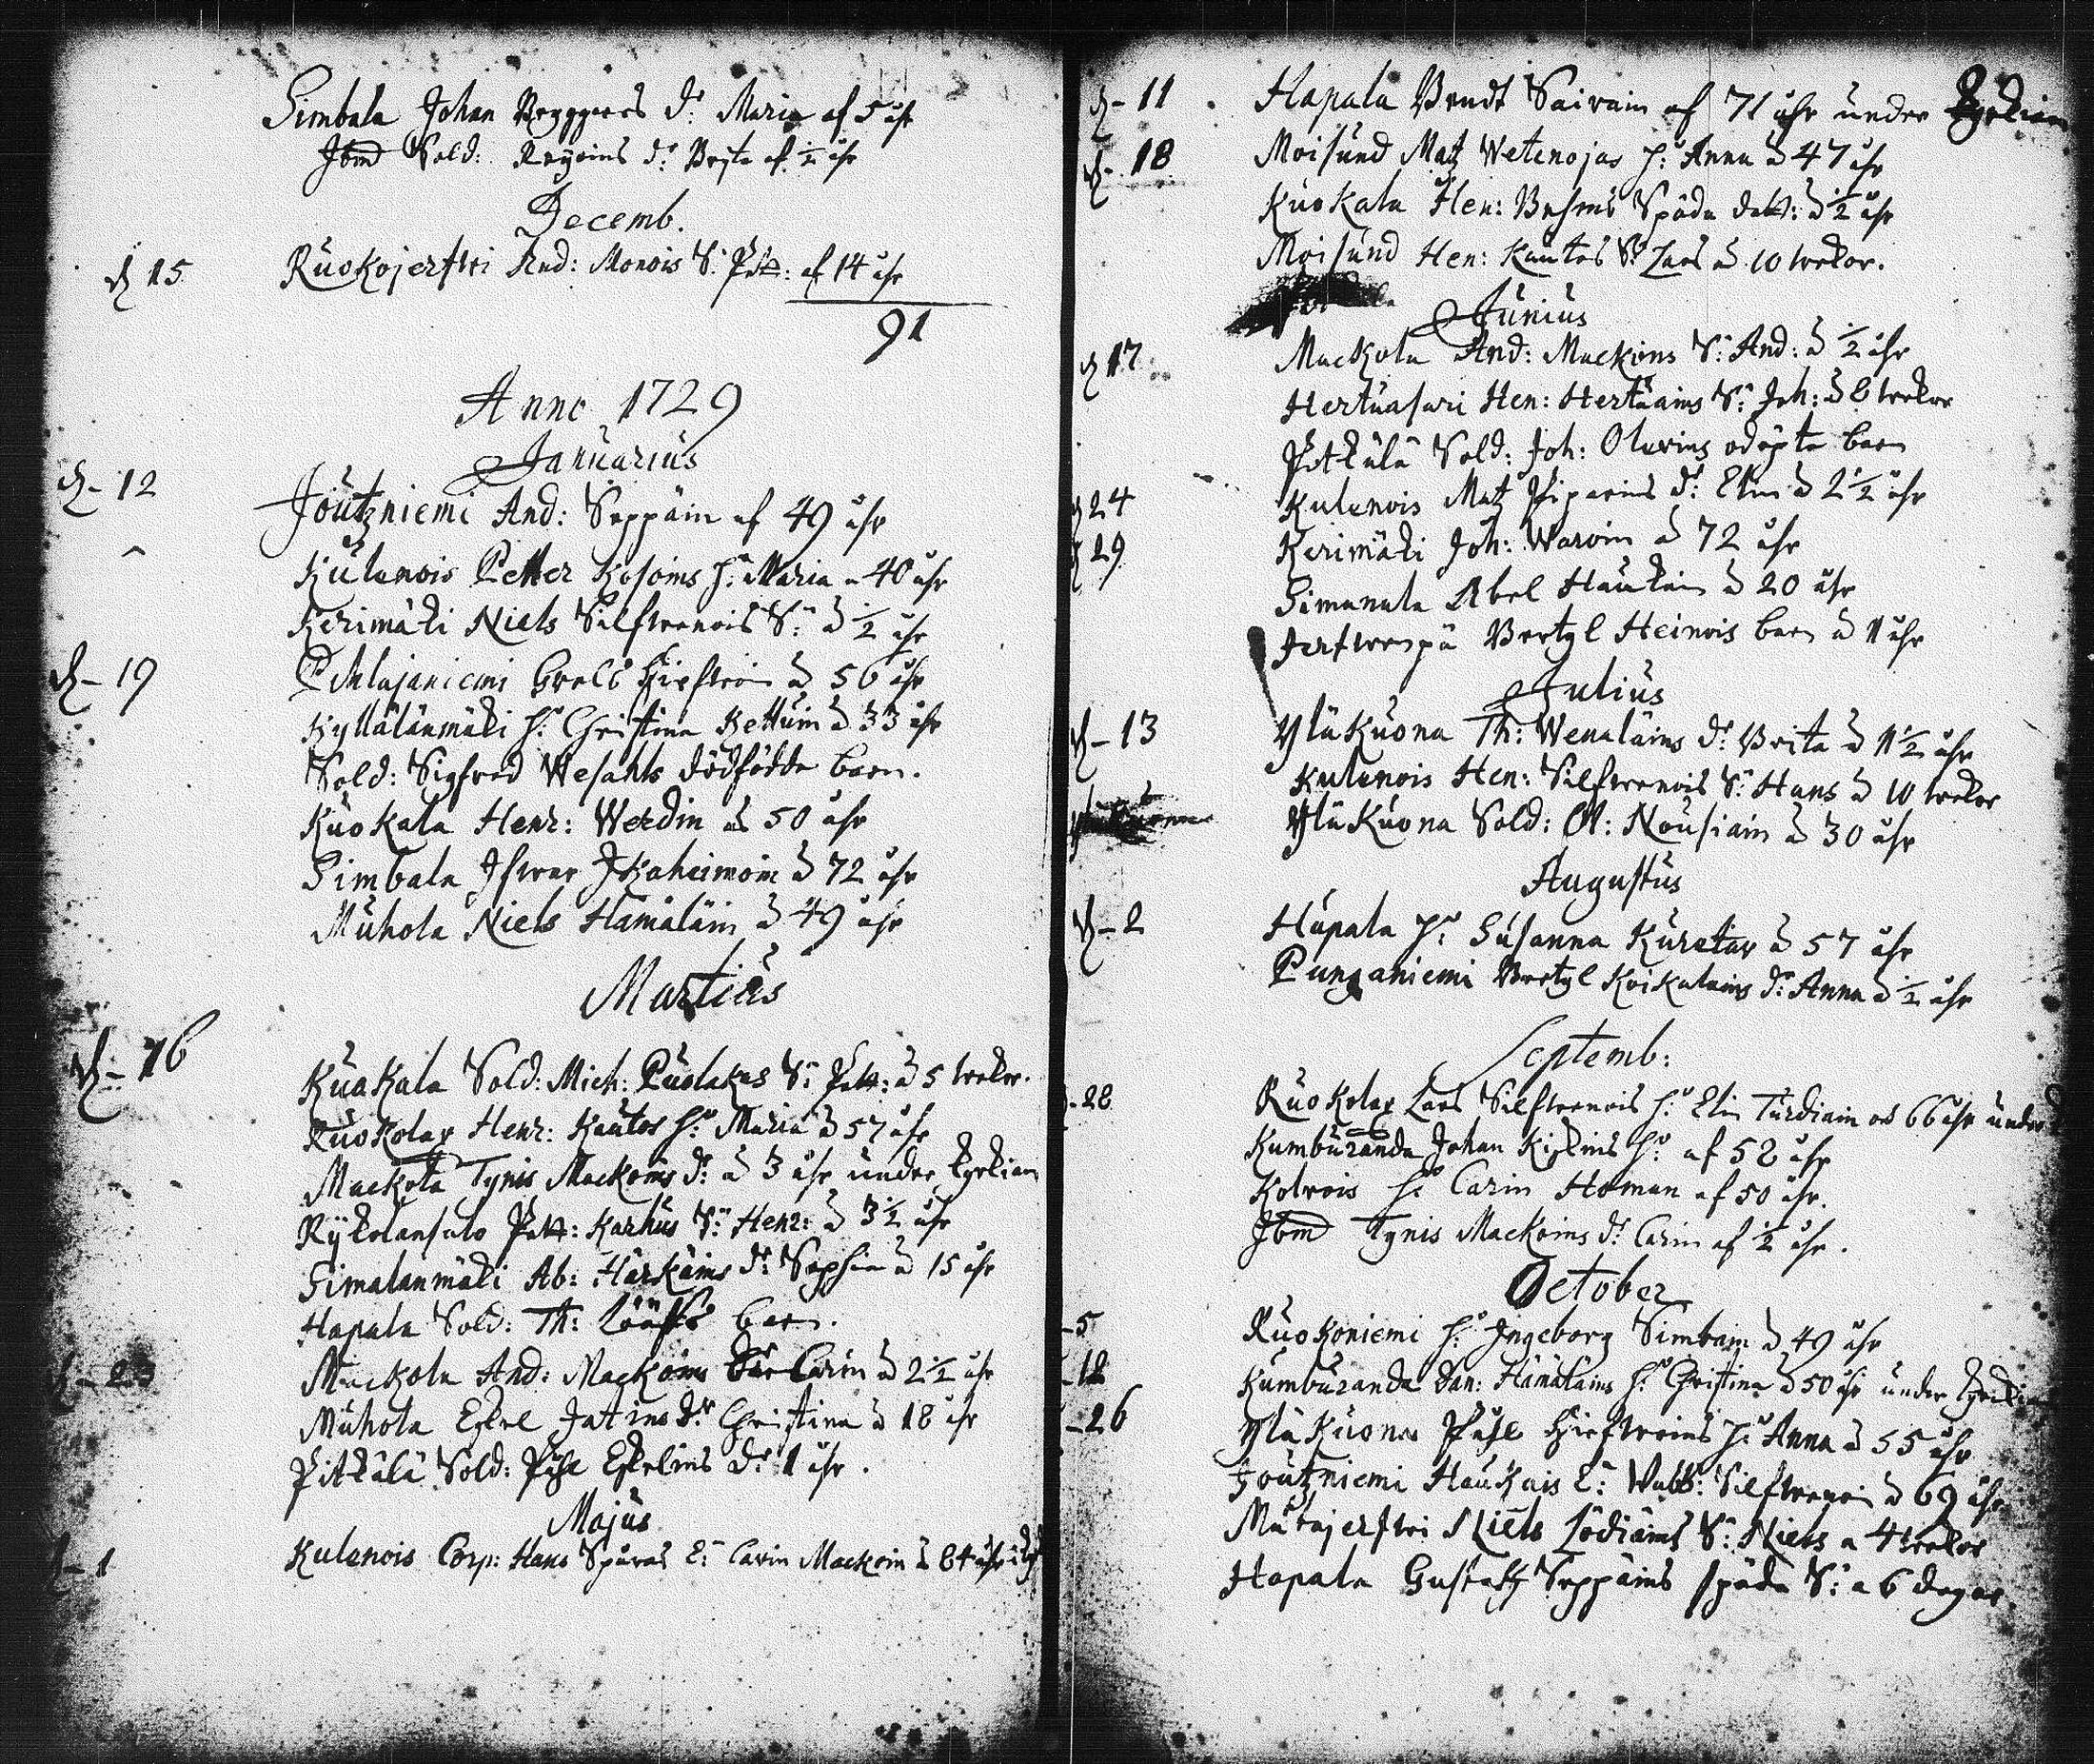 Simbala Johan d: Maria af 5 åhr
Ibm Sold: d: Brita af ½ åhr
Decemb.
d 15 Ruokojerfwi And: Monois S: Pett: af 14 åhr
91
Anno 1729
Januarius
d - 12 Joutzniemi And: Seppäin af 49 åhr
Kulenois Petter Kosoins h: Maria a 40 åhr
Kerimäki Niels Silfwenois S: a ½ åhr
d - 19 Pihlajaniemi Grels Hirfwoin a 56 åhr
Kyllälänmäki h: Christina Kettuin a 33 åhr
Sold: Sigfred Wesahls dödfödde barn.
Kuokala Henr: Werdin a 50 åhr
Simbala Ifwar Ikäheimoin a 72 åhr
Muhola Niels Hämäläin a 49 åhr
Martius
d - 16 Kuokala Sold: Mich: Puolakas S: Pett: a 5 wekor.
Ruokolax Henr: Kautos h: Maria a 57 åhr
Mackola Tynis Mackoins d: a 3 åhr under kyrkian
Rykolansalo Pett: Karhus S: Henr: a 3½ åhr
Simalanmäki Ab: Härkäins d: Sophia a 15 åhr
Hapala Sold: Th: Lööfs barn.
d - 23 Mackola And: Mackoins Carin a 2½ åhr
Muhola Eskel Jatins dr Christina a 18 åhr
Pitkälä Sold: Påhl Eskelins d: 1 åhr.
Majus
d - 1 Kulenois Corp: Hans Spåras E: Carin Mackoin a 84 åhr
d - 11 Hapala Bendt Saivain af 71 åhr under kyrkian
d - 18 Moisund Matz Wetenojas h: Anna a 47 åhr
Kuokala Hen: Späda dott: a ½ åhr
Moisund Hen: Kautos S: Lars a 10 wekor.
Junius
d 17 Mackola And: Mackoins S: And: a ½ åhr
Hertuasari Hen: Hertuains S: Joh: a 8 wekor
Pitkälä Sold: Joh: Olavins odöpta barn
d 24 Kulenois Matz Piparins d: Elin a 2½ åhr
d 29 Kerimäki Joh: Waroin a 72 åhr
Simanala Abel Haukain a 20 åhr
Jerfwenpä Bertyl Heinois barn a 1 åhr
Julius
d - 13 Yläkuona Th: Wenäläins d: Brita a 1½ åhr
Kulenois Hen: Silfwenois S: Hans a 10 wekor
Yläkuona Sold: Ol: Nousiain a 30 åhr
Augustus
d - 2 Hapala h: Susanna Kuretar a 57 åhr
Punganiemi Bertyl Koikalains d: Anna a ½ åhr
Septemb:
- 28 Ruokolax Lars Silfwenois h: Elin Turdiain a 66 åhr under
Kumburanda Johan Kiskins h: af 52 åhr
Kolwois h: Carin Homan af 50 åhr.
Ibm Tynis Mackoins d: Carin af ½ åhr.
October
- 5 Ruokoniemi h: Ingeborg Simbain a 49 åhr
- 12 Kumburanda Dan: Hämäläins h: Christina a 50 åhr under kyrkian
- 26 Yläkuona Påhl Hirfwoins h: Anna a 55 åhr
Joutzniemi Haukais E: Walb: Silfwenoin a 69 åhr
Mätäjerfwi Niels Lödiäins S: Niels a 4 wekor
Hapala Gustaff Seppäins späda S: a 6 dagar